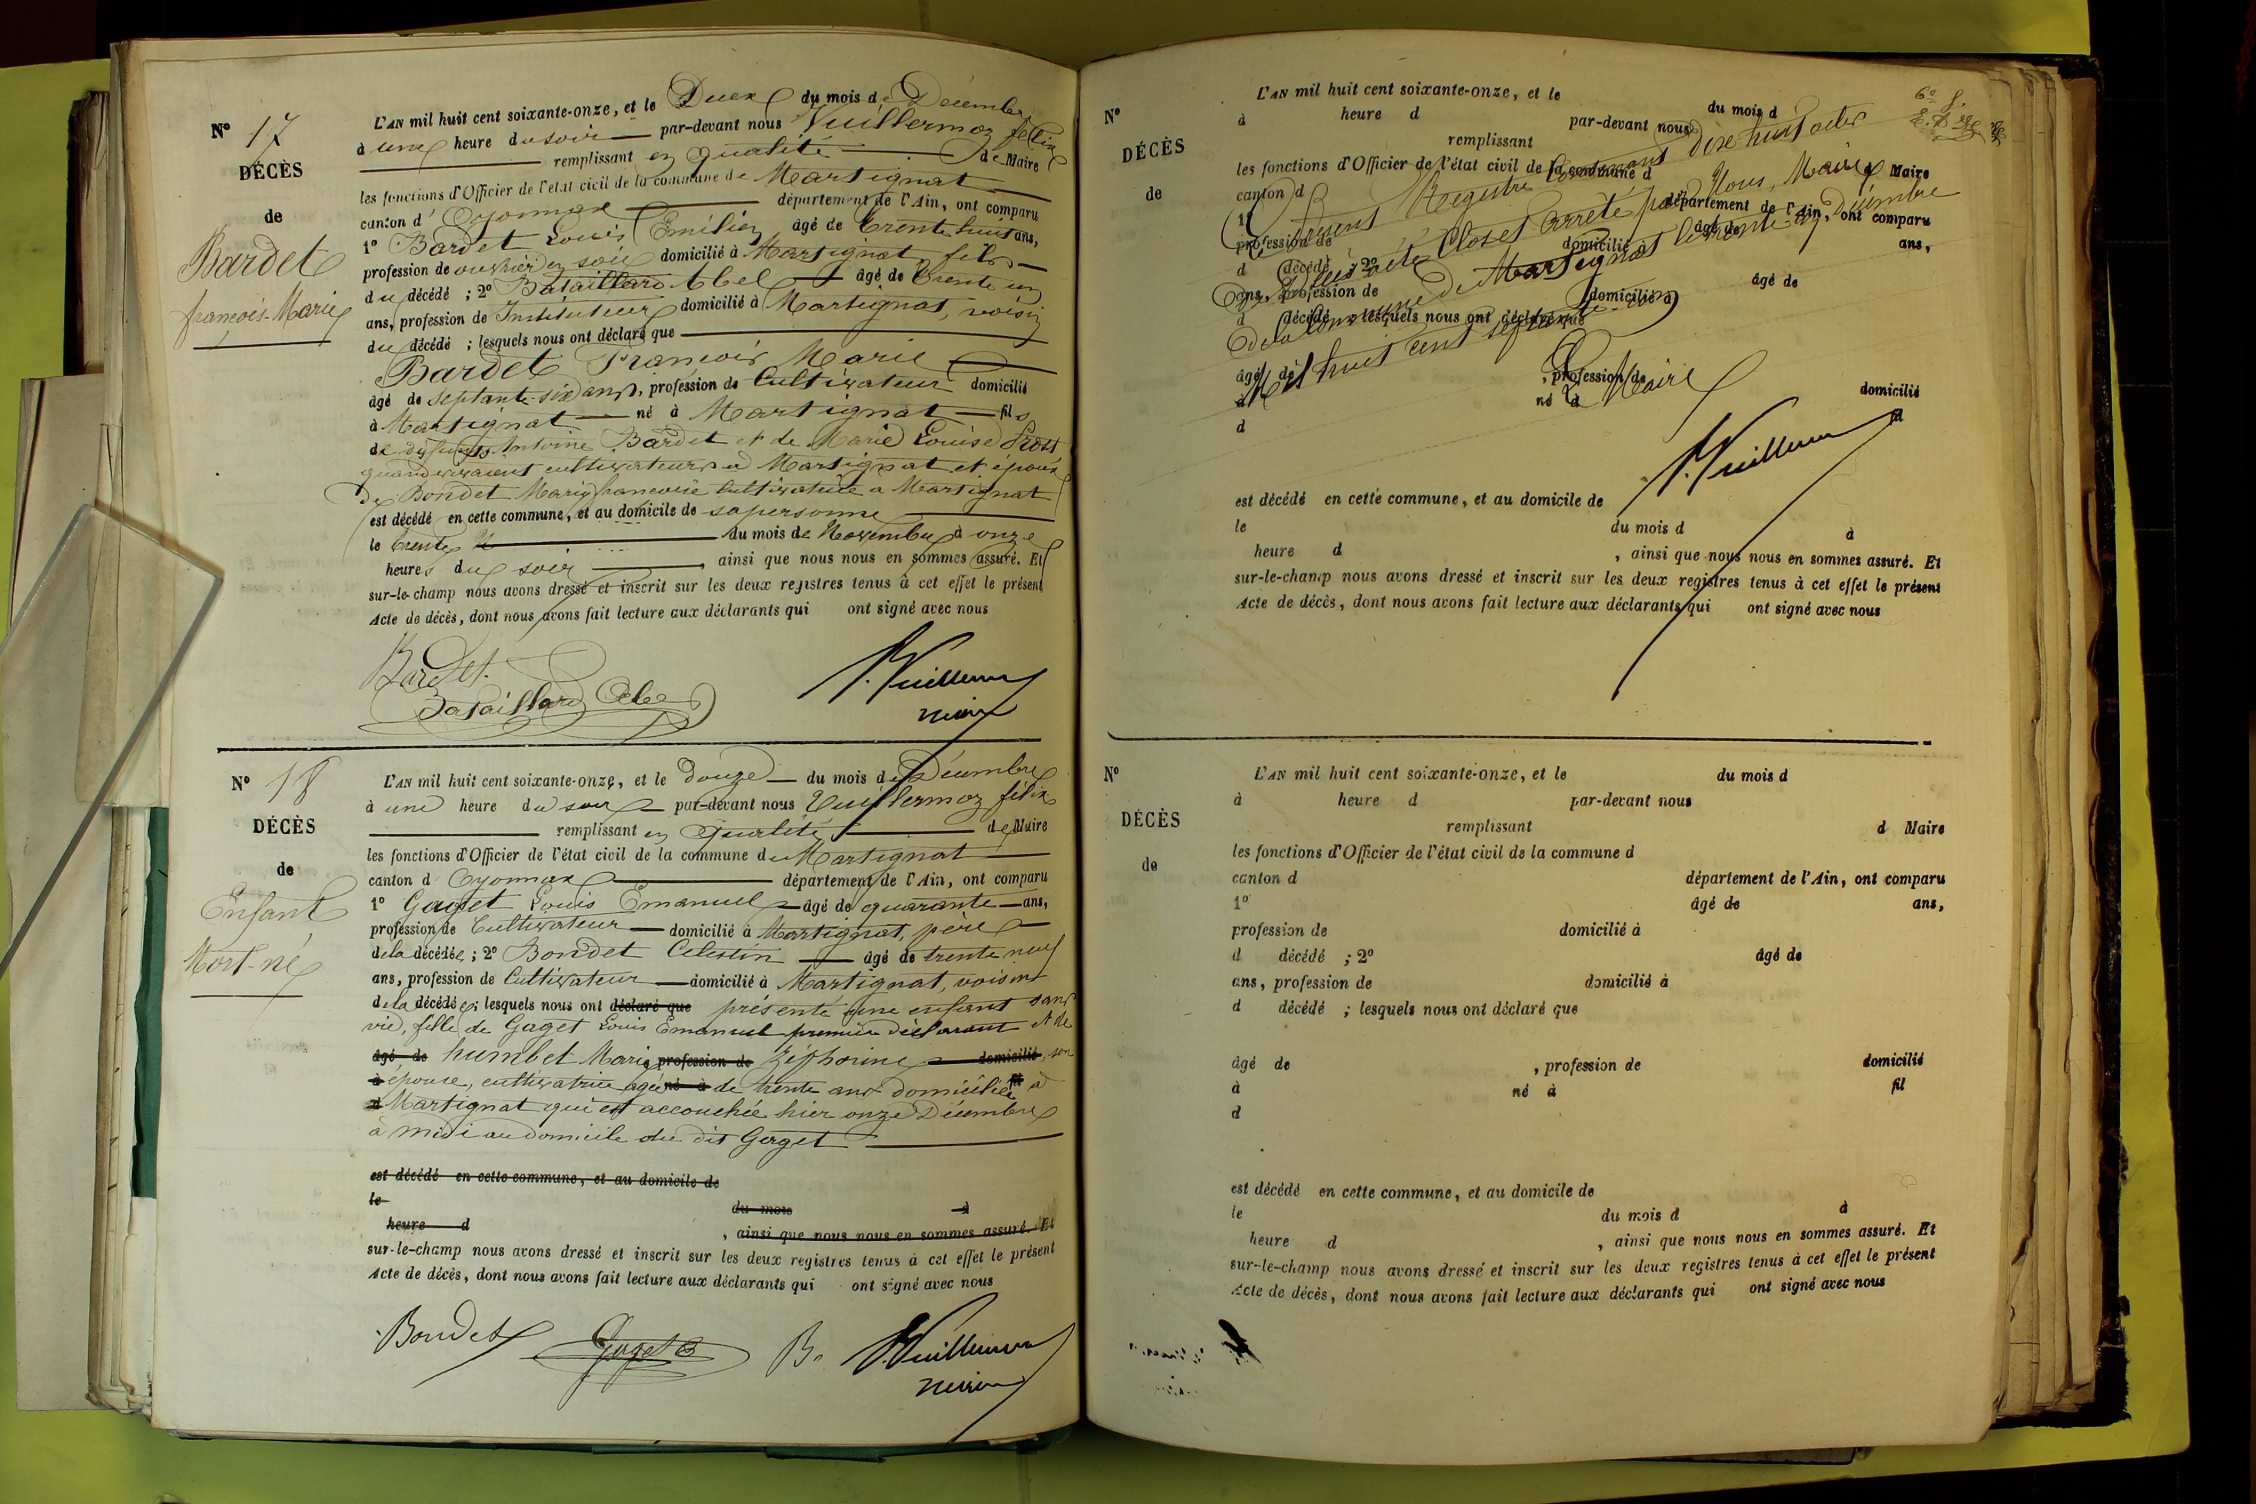 N° 17
DÉCÈS
de
Bardet
françois-Marie
L'AN mil huit cent soixante-onze, et le Deux du mois de Décembre
à une heure du soir par-devant nous Vuillermoz félix
remplissant en qualité de Maire
les fonctions d'Officier de l'état civil de la commune de Martignat
canton d'Oyonnax département de l'Ain, ont comparu
1° Bardet Louis Emilien âgé de trente huit ans,
profession de ouvrier en soie domicilié à Martignat, fils
du décédé ; 2° Bataillard Abel âgé de trente un
ans, profession de Instituteur domicilié à Martignat, voisin
du décédé ; lesquels nous ont déclaré que
Bardet François Marie
âgé de septante-six ans, profession de Cultivateur domicilié
à Martignat né à Martignat fils
de défunts Antoine Bardet et de Marie Louise Prost
quand vivaient cultivateurs à Martignat et époux
de Bondet Marie françoise Cultivatrice a Martignat
est décédé en cette commune, et au domicile de sa personne
le trente du mois de Novembre à onze
heures du soir , ainsi que nous nous en sommes assuré. Et
sur-le-champ nous avons dressé et inscrit sur les deux registres tenus à cet effet le présent
Acte de décès, dont nous avons fait lecture aux déclarants qui ont signé avec nous
Bardet
Bataillard Abel
f. Vuillermoz
maire
N° 18
DÉCÈS
de
Enfant
Mort-né
L'AN mil huit cent soixante-onze, et le douze du mois de Décembre
à une heure du soir par-devant nous Vuillermoz félix
remplissant en qualité de Maire
les fonctions d'Officier de l'état civil de la commune de Martignat
canton d Oyonnax département de l'Ain, ont comparu
1° Gaget Louis Emanuel âgé de quarante ans,
profession de Cultivateur domicilié à Martignat, père
de la décédée ; 2° Bondet Celestin âgé de trente neuf
ans, profession de Cultivateur domicilié à Martignat, voisin
de la décédée ; lesquels nous ont déclaré que présenté une enfant sans
vie, fille de Gaget Louis Emanuel premier déclarant et de
âgé de humbet Marie profession de Zéphorine domicilié son
à épouse, cultivatrice agée né à de trente ans domiciliée à
d Martignat qui est accouchée hier onze Décembre
à midi au domicile du dit Gaget
est décédé en cette commune, et au domicile de
le du mois à
heure d , ainsi que nous nous en sommes assuré. Et
sur-le-champ nous avons dressé et inscrit sur les deux registres tenus à cet effet le présent
Acte de décès, dont nous avons fait lecture aux déclarants qui ont signé avec nous
Bondet
Gaget
f. Vuillermoz
maire
N°
DÉCÈS
de
L'AN mil huit cent soixante-onze, et le du mois d
à heure d par-devant nous
remplissant d Maire
les fonctions d'Officier de l'état civil de la commune d
canton d département de l'Ain, ont comparu
1° âgé de ans,
profession de domicilié à
d décédé ; 2° âgé de
ans, profession de domicilié à
d décédé ; lesquels nous ont déclaré que
Le Présent Registre Contenant dixe huit actes
de décès a été Clos et arrêté par Nous, Maire
de la Commune de Martignat le trente un Décembre
Mil huit cent septante-un
Le Maire
f. Vuillermoz
âgé de , profession de domicilié
à né à fil
d
est décédé en cette commune, et au domicile de
le du mois d à
heure d , ainsi que nous nous en sommes assuré. Et
sur-le-champ nous avons dressé et inscrit sur les deux registres tenus à cet effet le présent
Acte de décès, dont nous avons fait lecture aux déclarants qui ont signé avec nous
N°
DÉCÈS
de
L'AN mil huit cent soixante-onze, et le du mois d
à heure d par-devant nous
remplissant d Maire
les fonctions d'Officier de l'état civil de la commune d
canton d département de l'Ain, ont comparu
1° âgé de ans,
profession de domicilié à
d décédé ; 2° âgé de
ans, profession de domicilié à
d décédé ; lesquels nous ont déclaré que
âgé de , profession de domicilié
à né à fil
d
est décédé en cette commune, et au domicile de
le du mois d à
heure d , ainsi que nous nous en sommes assuré. Et
sur-le-champ nous avons dressé et inscrit sur les deux registres tenus à cet effet le présent
Acte de décès, dont nous avons fait lecture aux déclarants qui ont signé avec nous